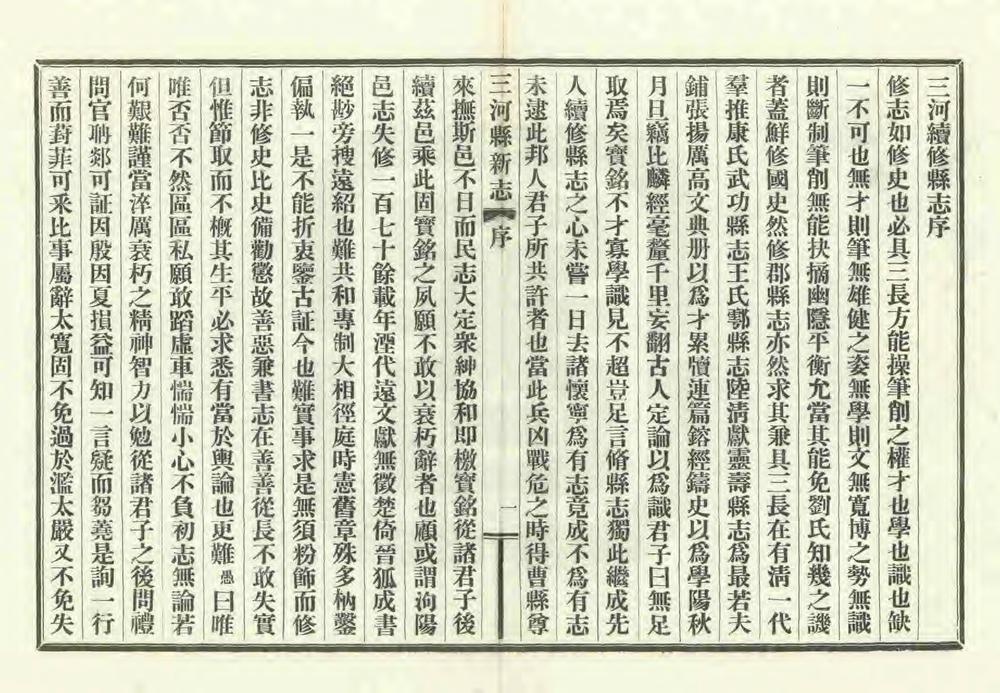 三河續修縣志序
修志如修史也必具三長方能操筆削之權才也學也識也缺
一不可也無才則筆無雄健之姿無學則文無寬博之勢無識
則斷制筆削無能抉摘幽隱平衡允當其能免劉氏知幾之譏
者蓋鮮修國史然修郡縣志亦然求其兼具三長在有淸一代
羣推康氏武功縣志王氏鄠縣志陸淸獻靈壽縣志爲最若夫
鋪張揚厲高文典册以爲才累牘連篇鎔經鑄史以爲學陽秋
月旦竊比麟經毫釐千里妄翻古人定論以爲識君子曰無足
取焉矣寶銘不才寡學識見不超豈足言脩縣志獨此繼成先
人續修縣志之心未嘗一日去諸懷寗爲有志竟成不爲有志
未逮此邦人君子所共許者也當此兵凶戰危之時得曹縣尊
三河縣新志 序 一
來撫斯邑不日而民志大定衆紳協和即檄寶銘從諸君子後
續茲邑乘此固寶銘之夙願不敢以衰朽辭者也顧或謂泃陽
邑志失修一百七十餘載年湮代遠文獻無徵楚倚晉狐成書
絕尠旁搜遠紹也難共和專制大相徑庭時憲舊章殊多枘鑿
偏執一是不能折衷鑒古証今也難實事求是無須粉飾而修
志非修史比史備勸懲故善惡兼書志在善善從長不敢失實
但惟節取而不槪其生平必求悉有當於輿論也更難愚曰唯
唯否否不然區區私願敢蹈虛車惴惴小心不負初志無論若
何艱難謹當淬厲衰朽之精神智力以勉從諸君子之後問禮
問官聃郯可証因殷因夏損益可知一言疑而芻蕘是詢一行
善而葑菲可釆比事屬辭太寬固不免過於濫太嚴又不免失